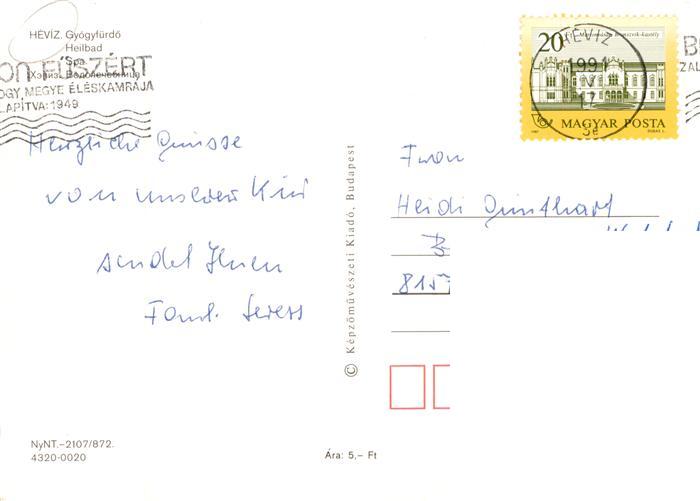 HÉVÍZ. Gyógyfürdő
Heilbad
Spa
Хевиз. Водолечебница
ON FŰSZÉRT
OGY, MEGYE ÉLÉSKAMRÁJA
LAPÍTVA: 1949
20 Ft
HÉVÍZ
1991
MAGYAR POSTA
Herzliche Grüsse
von unserer Kur
sendet Ihnen
Fam. Seress
Frau
Heidi
815
© Képzőművészeti Kiadó, Budapest
NyNT.–2107/872.
4320-0020
Ára: 5,– Ft